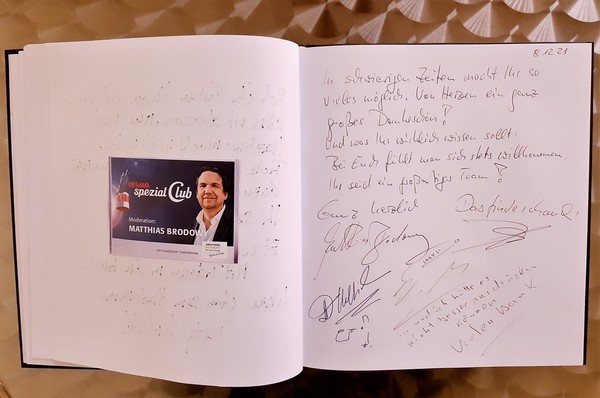 spezial Club
Moderation:
MATTHIAS BRODOWY
8.12.21
In schwierigen Zeiten macht Ihr so
vieles möglich. Von Herzen ein ganz
großes Dankeschön!
Und was Ihr wirklich wissen sollt:
Bei Euch fühlt man sich stets willkommen.
Ihr seid ein großartiges Team!
Ganz herzlich
Das finde ich auch!
Matthias Brodowy
... und ich hätte es
nicht besser ausdrücken
können
Vielen Dank